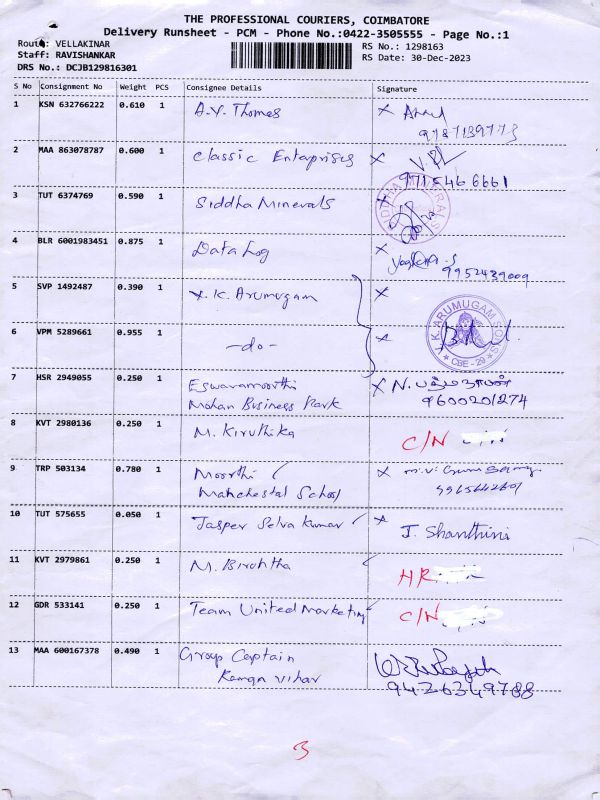 THE PROFESSIONAL COURIERS, COIMBATORE
Delivery Runsheet - PCM - Phone No.:0422-3505555 - Page No.:1
Route: VELLAKINAR
RS No.: 1298163
Staff: RAVISHANKAR
RS Date: 30-Dec-2023
DRS No.: DCJB129816301
S No Consignment No Weight PCS Consignee Details Signature
1 KSN 632766222 0.610 1 A.V. Thomas
2 MAA 863078787 0.600 1 Classic Enterprises
971546 6661
3 TUT 6374769 0.590 1 Siddha Minerals
SIDDHA MINERALS
4 BLR 6001983451 0.875 1 Data Log
9952439009
5 SVP 1492487 0.390 1 K. Arumugam
K. ARUMUGAM SONS
CBE - 29
6 VPM 5289661 0.955 1 -do-
7 HSR 2949055 0.250 1 Eswaramoorthi N.
Mohan Business Park 9600201274
8 KVT 2980136 0.250 1 M. Kiruthika C/N
9 TRP 503134 0.780 1 Moorthi
Manchestal School
10 TUT 575655 0.050 1 Jasper Selva kumar J. Shanthini
11 KVT 2979861 0.250 1 M. HR
12 GDR 533141 0.250 1 Team United Marketing C/N
13 MAA 600167378 0.490 1 Group Captain
vihar 9426349788
3